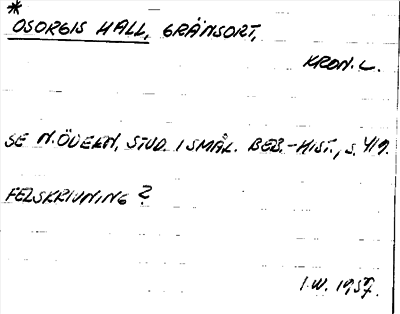 *
OSORGIS HALL, GRÄNSORT,
KRON. L.
SE N. ÖDEEN, STUD. I SMÅL. BEB.-HIST., S. 419.
FELSKRIVNING?
I.W. 1959.